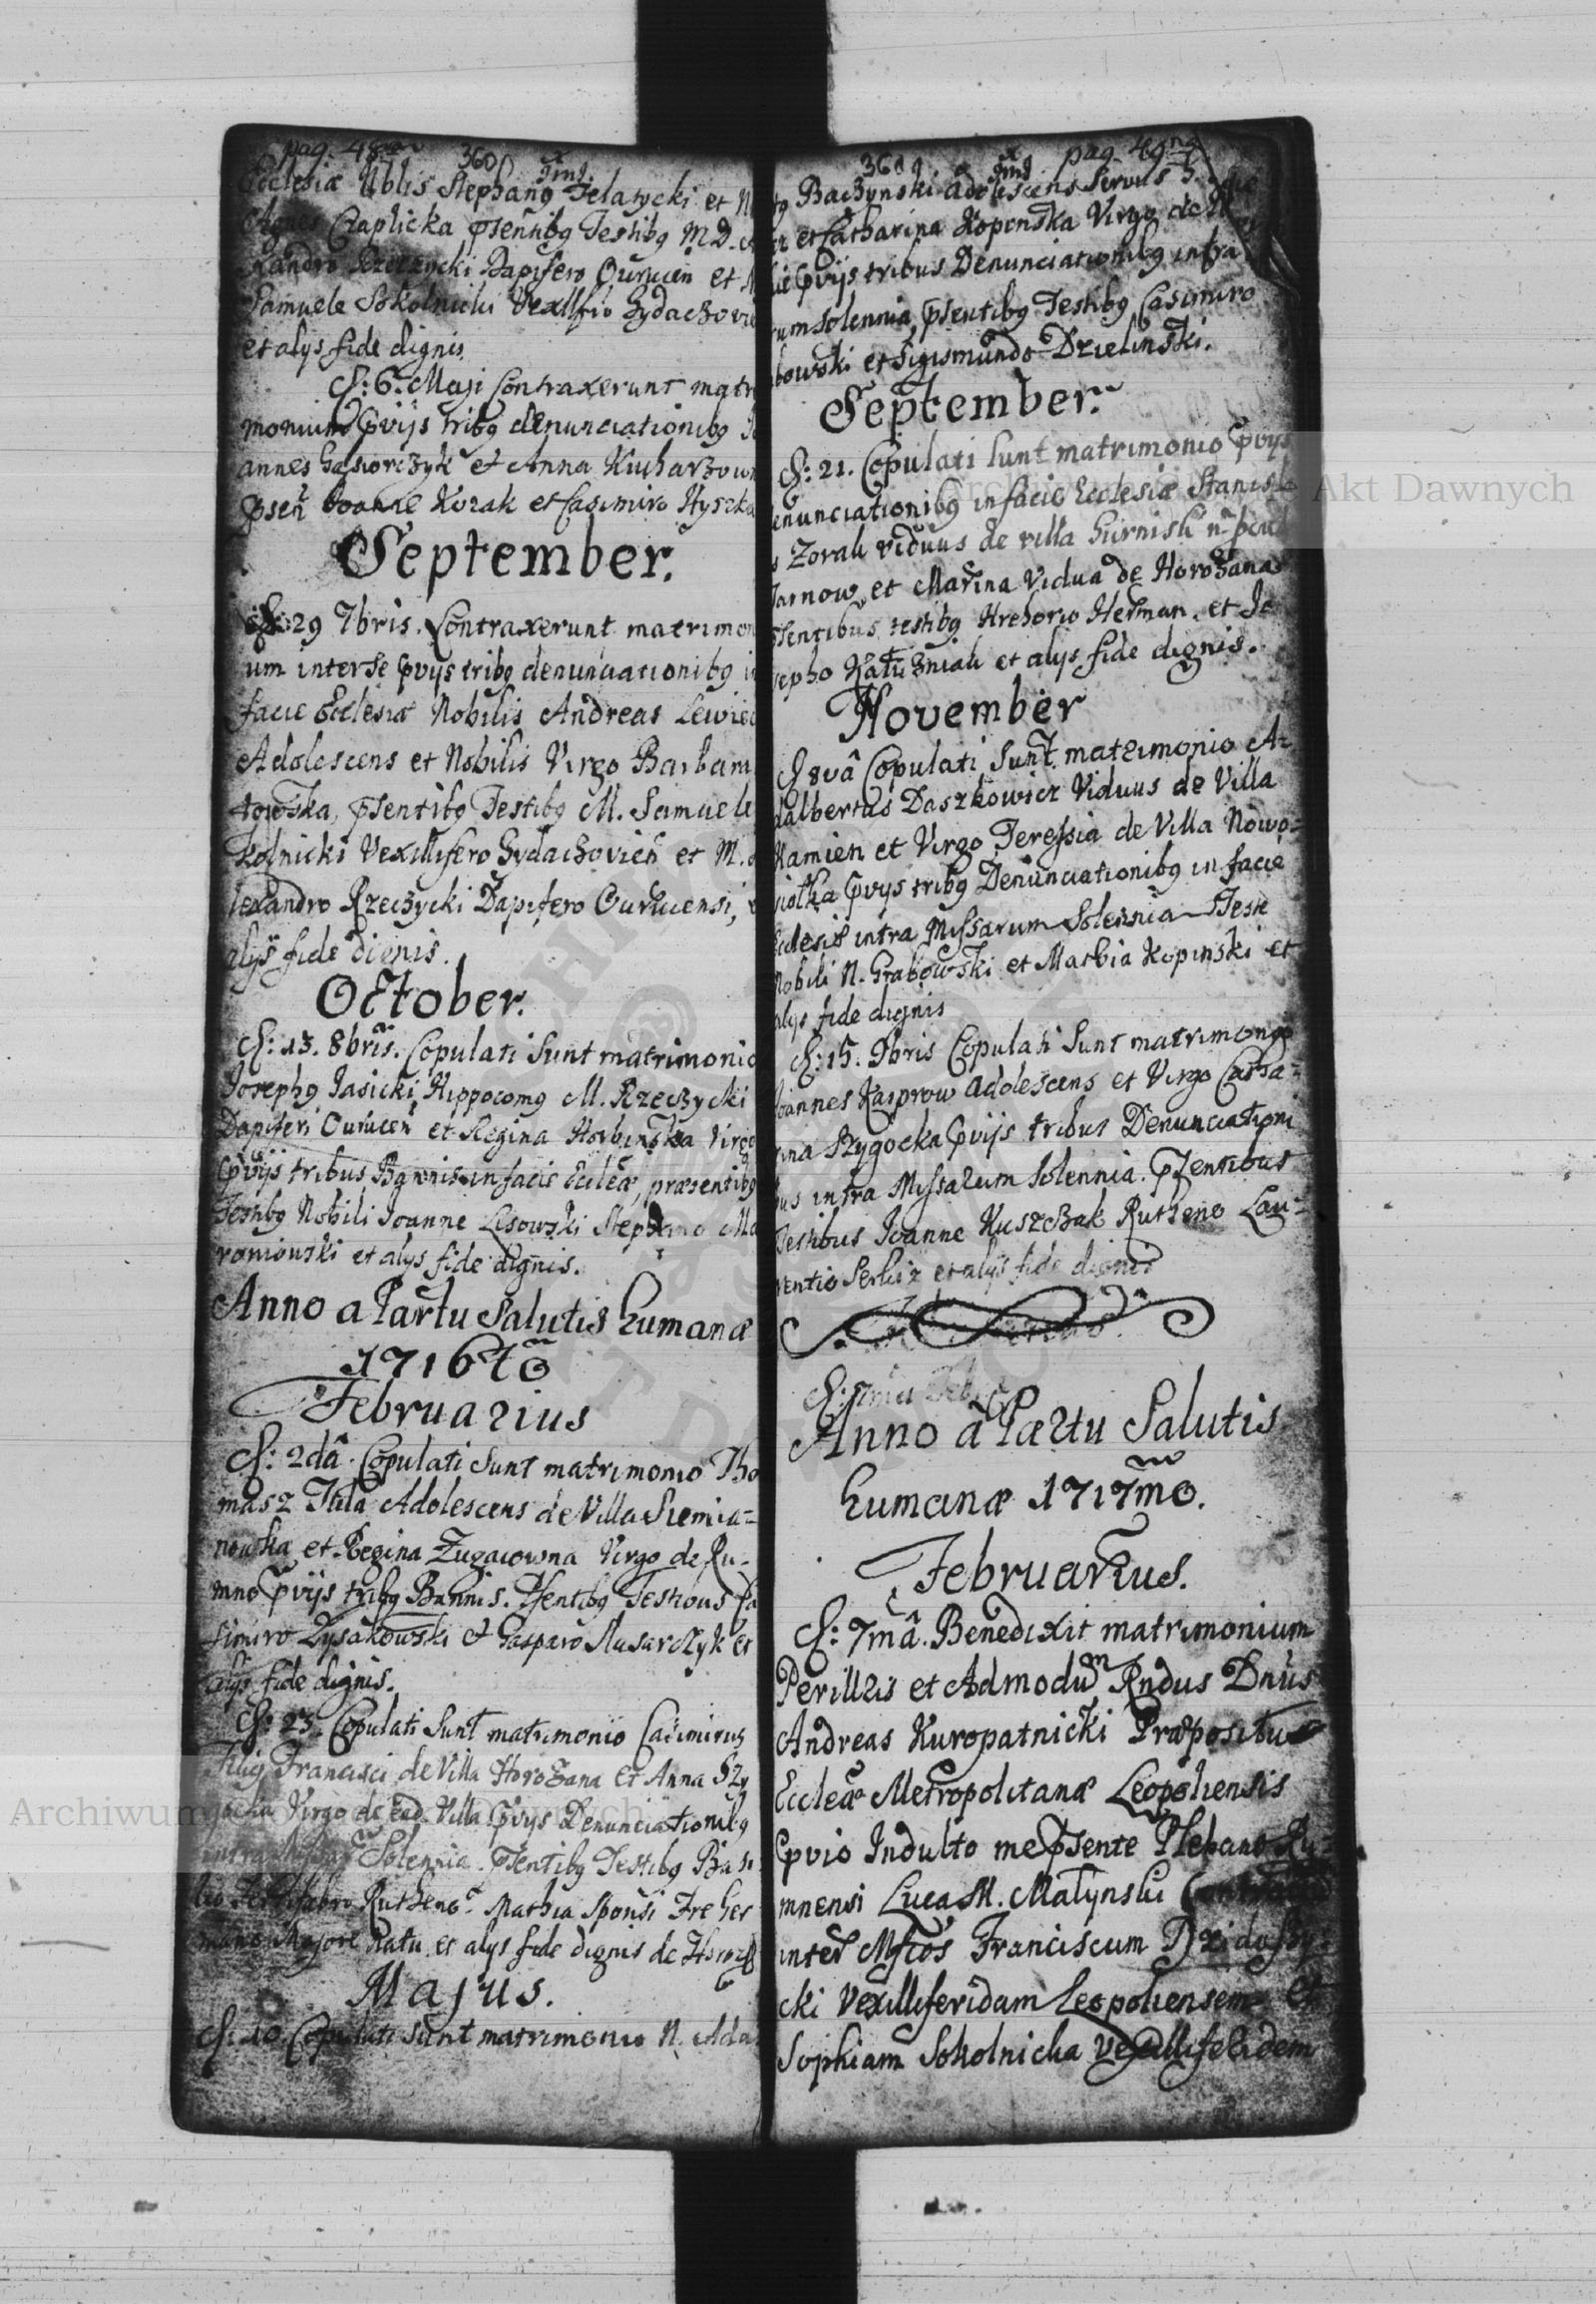 pag. 48
360
Ecclesiæ Nblis Stephang Telatycki et N
Agnes Czaplicka psentibg Testibg M.D. A
xandro Rzeczycki Dapifero Ourucen et M
Samuele Sokolnicki Vexillfio Zydaczovie
et alys fide dignis
D: 6. Maji Contraxerunt matri
monium pviis tribg denunciationibg Jo
annes Gąsiorczyk et Anna Kucharzown
psen Joanne Kozak et Casimiro Hyszka
September.
D: 29 7bris. Contraxerunt matrimoni
um inter se pvijs tribg denunciationibg in
facie Ecclesiæ Nobilis Andreas Lewiec
Adolescens et Nobilis Virgo Barbara
towska, psentibg Testibg M. Samuele
kolnicki Vexillifero Zydachovien et M. A
lexandro Rzeczycki Dapifero Ourucensi, e
alys fide dignis.
October.
D: 13. 8bris. Copulati Sunt matrimonio
Josephg Jasicki Hippocomg M. Rzeczycki
Dapiferi Ourucen et Regina Horbinska Virgo
pviis tribus Bannis in facie Eccleæ, præsentibg
Testibg Nobili Joanne Lisowski Stephano Ma
roniowski et alys fide dignis.
Anno a Partu Salutis humanæ
1716to
Februarius
D: 2dâ. Copulati Sunt matrimonio Tho
masz Itila Adolescens de Villa Siemia=
nowka et Regina Zugaiowna Virgo de Ru-
mno pviis tribg Bannis. Psentibg Testibus Ca
simiro Zysakowski et Gasparo Slusarczyk et
alys fide dignis.
D: 23. Copulati Sunt matrimonio Casimirus
Filig Francisci de Villa Horozana et Anna Szy
gocka Virgo de ead. Villa pvys Denunciationibg
intra Missar Solennia. Psentibg Testibg Basi
lio Rutheno. Mathia Sponsi Fre Her
mano Majore Natu et alys fide dignis de Horoz
Majus.
D: 10. Copulati Sunt matrimonio N. Ada
pag. 49
360
Baczynski Adolescens Servus
et Catharina Kopenska Virgo de
pvijs tribus Denunciationibg intra
rum Solennia, psentibg Testibg Casimiro
bowski et Sigismundo Dzielinski.
September.
D: 21. Copulati Sunt matrimonio pvys
enunciationibg in facie Ecclesiæ Stanisla
s Zorali viduus de villa Gurnish n
Tarnow, et Marina Vidua de Horozana
psentibus testibg Hrehorio Herman, et Jo
sepho Kaluzniak et alys fide dignis.
November
D 8vâ Copulati Sunt matrimonio A=
dalbertus Daszkowicz Viduus de Villa
Kamien et Virgo Teressia de Villa Nowo=
siolka pvys tribg Denunciationibg in facie
Ecclesiæ intra Missarum Solennia Teste
Nobili N. Grabowski et Mathia Kopinski et
alys fide dignis
D: 15. 9bris Copulati Sunt matrimonyo
Joannes Kasprow Adolescens et Virgo Catha=
rina Szygocka pviis tribus Denunciationi
bus intra Missarum Solennia. Psentibus
Testibus Joanne Kuszczak Rutheno Lau=
rentio et alys fide dignis
Anno a Partu Salutis
humanæ 1717mo.
Februarius.
D: 7mâ. Benedixit matrimonium
Perillris et Admodum Rndus Dnus
Andreas Kuropatnicki Præpositus
Eccleæ Metropolitanæ Leopoliensis
pvio Indulto me psente Plebano Ru
mnensi Luca M. Malynski Contractum
inter Mfcos Franciscum Dzieduszy=
cki Vexilliferidam Leopoliensem et
Sophiam Sokolnicka Vexilliferidem
Archiwum Główne Akt Dawnych